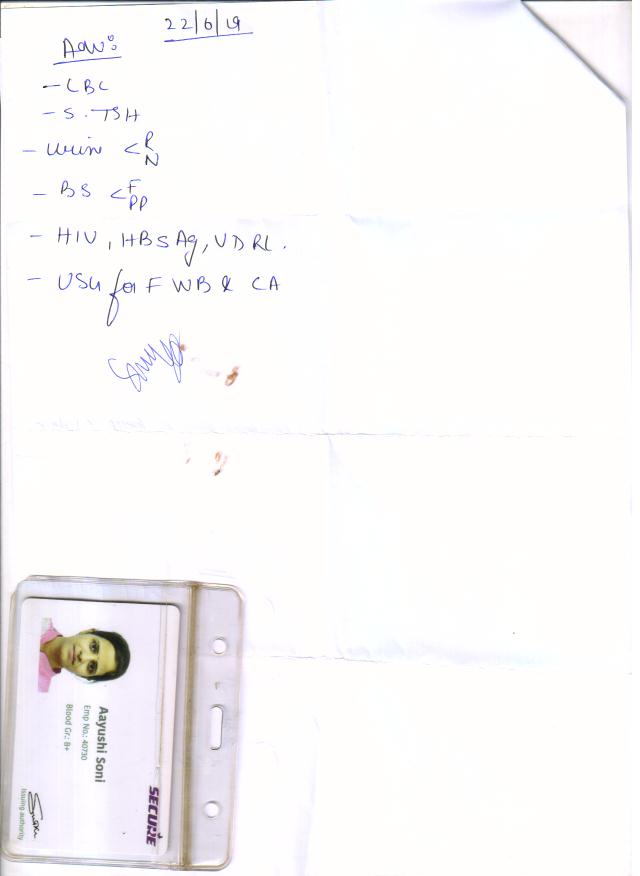 22/6/19
Adv:
- CBC
- S. TSH
- Urine < R
N
- BS < F
PP
- HIV, HBSAg, VDRL.
- USG for FWB & CA
SECURE
Aayushi Soni
Emp No.: 40730
Blood Gr.: B+
Issuing authority